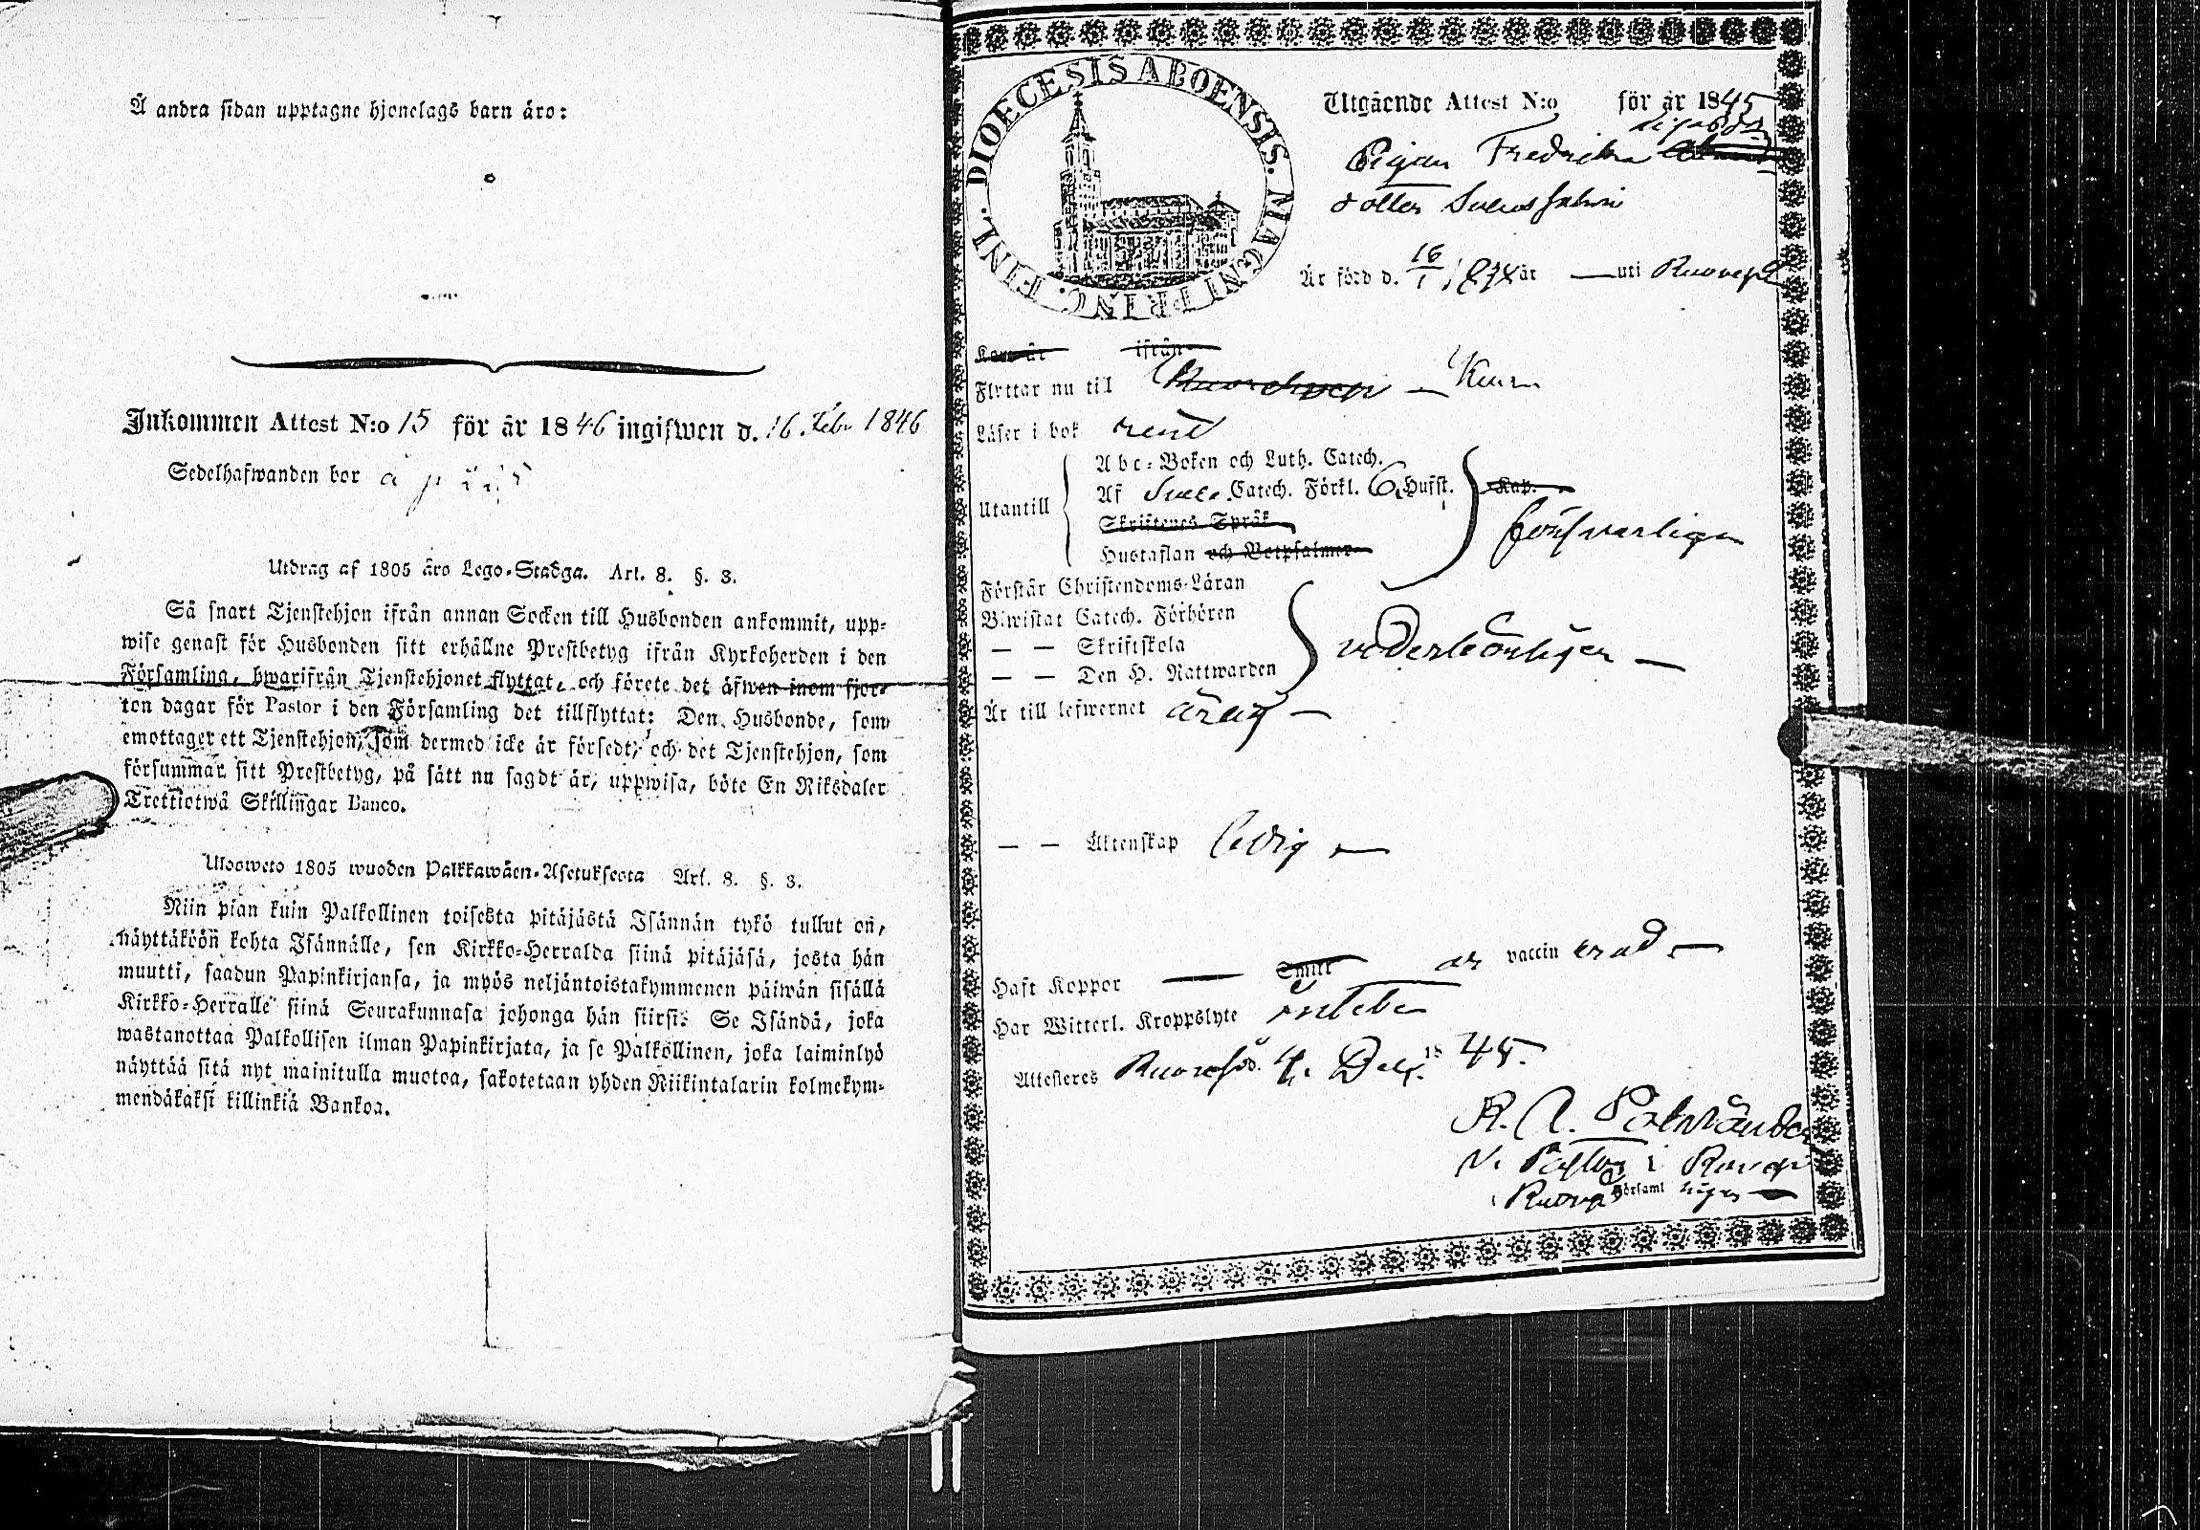 Å andra sidan upptagne hjonelags barn äro:
Inkommen Attest N:o 15 för år 1846 ingifwen d. 16 Febr 1846
Sedelhafwanden bor å
Utdrag af 1805 åro Lego-Stadga. Art. 8. §. 3.
Så snart Tjenstehjon ifrån annan Socken till Husbonden ankommit, upp-
wise genast för Husbonden sitt erhållne Prestbetyg ifrån Kyrkoherden i den
Församling, hwarifrån Tjenstehjonet flyttat, och förete det äfwen inom fjor-
ton dagar för Pastor i den Församling det tillflyttat: Den Husbonde, som
emottager ett Tjenstehjon, som dermed icke är försedt, och det Tjenstehjon, som
försummar sitt Prestbetyg, på sätt nu sagdt är, uppwisa, böte En Riksdaler
Trettiotwå Skillingar Banco.
Ulosweto 1805 wuoden Palkkawäen-Asetuksesta Art. 8. §. 3.
Niin pian kuin Palkollinen toisesta pitäjästä Isännän tykö tullut on,
näyttäköön kohta Isännälle, sen Kirkko-Herralda siinä pitäjäsä, josta hän
muutti, saadun Papinkirjansa, ja myös neljäntoistakymmenen päiwän sisällä
Kirkko-Herralle siinä Seurakunnasa johonga hän siirsi: Se Isändä, joka
wastanottaa Palkollisen ilman Papinkirjata, ja se Palkollinen, joka laiminlyö
näyttää sitä nyt mainitulla muotoa, sakotetaan yhden Riikintalarin kolmekym-
mendäkaksi killinkiä Bankoa.
DIOECESIS ABOENSIS. MAGNI PRINC. FINL.
Utgående Attest N:o för år 1845
Pigan Fredrika
dotter
Är född d. 16/1 uti Ruovesi
Kom år ifrån
Flyttar nu till Kuru
Läser i bok rent
Utantill
Abc-Boken och Luth. Catech.
Af Sveb. Catech. Förkl. 6. Hufst. Kap.
Skriftenes Språk
Hustaflan och Botpsalmer
försvarligen
Förstår Christendoms-Läran
Biwistat Catech. Förhören
— — Skriftskola
— — Den H. Nattwarden
vederbörligen —
Är till lefwernet ärlig —
— — Äktenskap ledig —
Haft Koppor — Smitt är vaccin erad —
Har Witterl. Kroppslyte
Attesteres Ruovesi d. 4. Dec. 18 45.
V. Pastor i
Församl